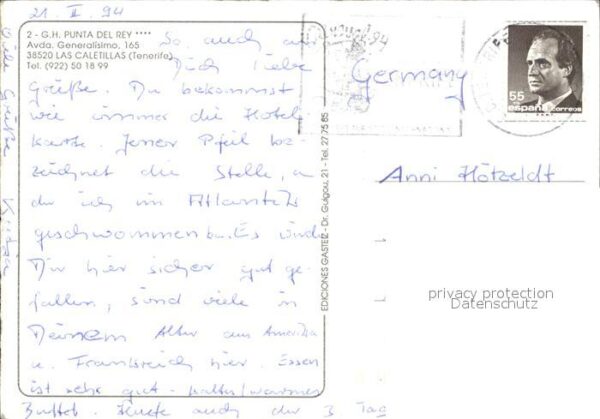 21. II. 94
2 - G.H. PUNTA DEL REY ****
Avda. Generalísimo, 165
38520 LAS CALETILLAS (Tenerife)
Tel. (922) 50 18 99
So, auch an
Dich liebe
Grüße. Du bekommst
wie immer die Hotel
karte. Jener Pfeil be
zeichnet die Stelle, an
der ich im Atlantik
geschwommen bin. Es würde
Dir hier sicher gut ge-
fallen, sind viele in
Deinem Alter aus Amerika
u. Frankreich hier. Essen
ist sehr gut - kaltes/warmes
Buffet. Heute auch der 3. Tag
Viele Grüße
EDICIONES GASTEIZ - Dr. Guigou, 21 - Tel. 27 75 65
94
Germany
55
españa correos
Anni Hötzeldt
privacy protection
Datenschutz